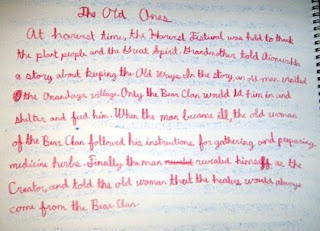 The Old Ones
At harvest time, the Harvest Festival was held to thank
the plant people and the Great Spirit. Grandmother told
a story about keeping the Old Ways. In the story, an old man visited
the Onandaga village. Only the Bear Clan would let him in and
shelter and feed him. When the man became ill, the old woman
of the Bear Clan followed his instructions for gathering and preparing
medicine herbs. Finally the man revealed himself as the
Creator, and told the old woman that the healers would always
come from the Bear Clan.